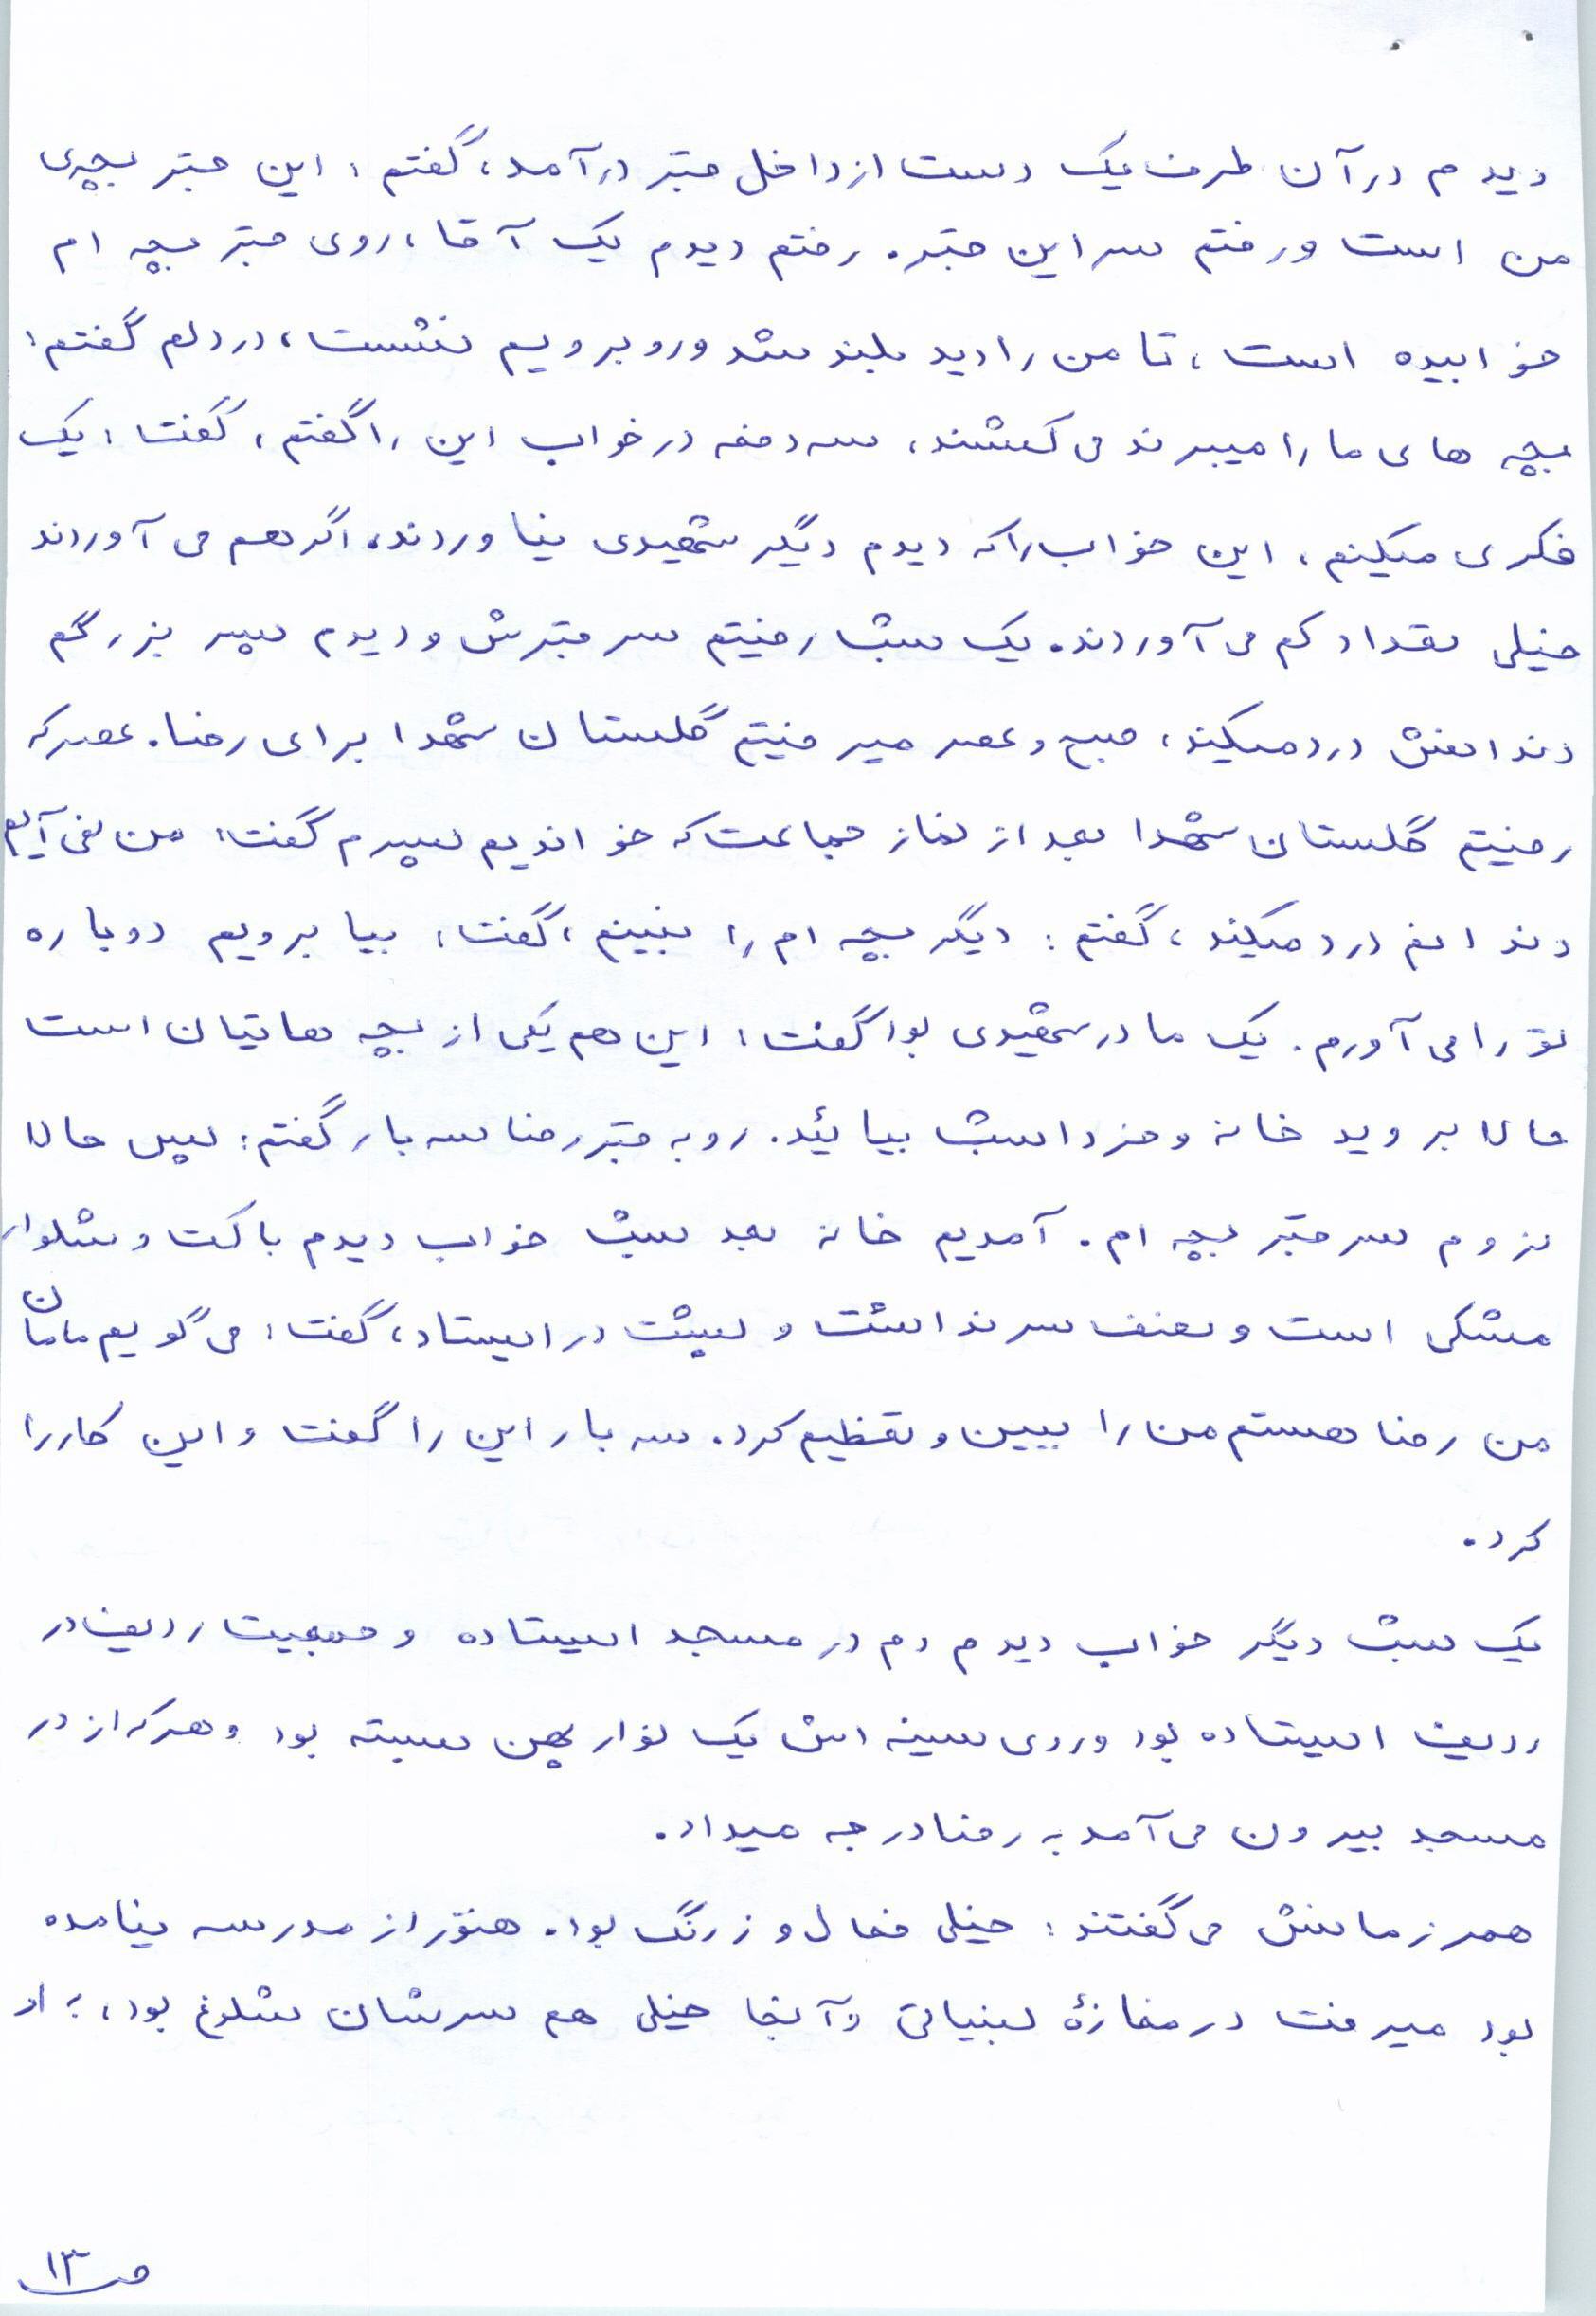 دیدم در آن طرف یک دست از داخل قبر درآمد، گفتم: این قبر بچه‌ی
من است و رفتم سر این قبر. رفتم دیدم یک آقا، روی قبر بچه ام
خوابیده است، تا من را دید بلند شد و روبرویم نشست، در دلم گفتم:
بچه های ما را میبرند می کشند، سه دفعه در خواب این را گفتم، گفت: یک
فکری میکنم. این خواب را که دیدم دیگر شهیدی نیاوردند، اگر هم می آوردند
خیلی تعداد کم می آوردند. یک شب رفتیم سر قبرش و دیدم پسر بزرگم
دندانش درد میکند، صبح و عصر میرفتیم گلستان شهدا برای رضا. عصر که
رفتیم گلستان شهدا بعد از نماز جماعت که خواندیم پسرم گفت: من نمی آیم
دندانم درد میکند، گفتم: دیگر بچه ام را نبینم، گفت: بیا برویم دوباره
تو را می آورم. یک مادر شهیدی بود گفت: این هم یکی از بچه هاتیان است
حالا بروید خانه و فردا شب بیائید. رو به قبر رضا سه بار گفتم: پس حالا
نروم سر قبر بچه ام. آمدیم خانه بعد شب خواب دیدم با کت و شلوار
مشکی است و نصف سر نداشت و پشت در ایستاد، گفت: می گویم مامان
من رضا هستم من را ببین و تعظیم کرد. سه بار این را گفت و این کار را
کرد.
یک شب دیگر خواب دیدم دم در مسجد ایستاده و جمعیت ردیف در
ردیف ایستاده بود و روی سینه اش یک نوار پهن بسته بود و هر که از در
مسجد بیرون می آمد به رضا درجه میداد.
همرزمانش می گفتند: خیلی فعال و زرنگ بود. هنوز از مدرسه نیامده
بود میرفت در مغازۀ لبنیاتی و آنجا خیلی هم سرشان شلوغ بود، او
ص ۱۳